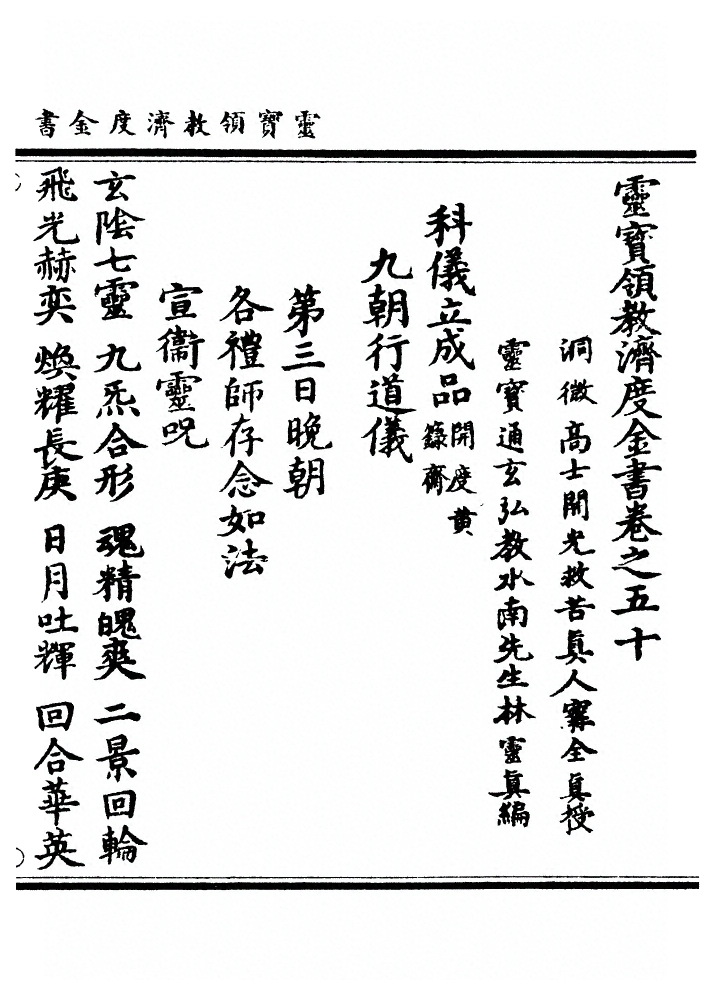 靈寶領教濟度金書
靈寶領教濟度金書卷之五十
洞微高士開光救苦眞人寗全眞授
靈寶通玄弘教水南先生林靈眞編
科儀立成品開度黃籙齋
九朝行道儀
第三日晚朝
各禮師存念如法
宣衞靈呪
玄陰七靈 九炁合形 魂精魄爽 二景回輪
飛光赫奕 煥耀長庚 日月吐輝 回合華英